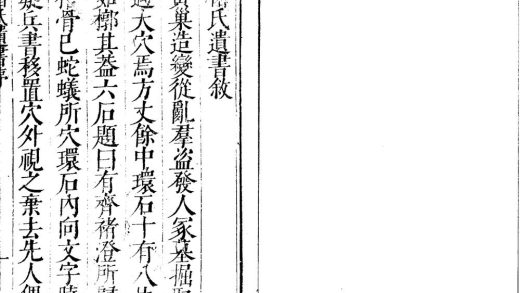 氏遺書敘
巢造變從亂羣盜發人冢墓掘
大穴焉方丈餘中環石十有八
如槨其葢六石題曰有齊褚澄所
骨已蛇蟻所穴環石內向文字
疑兵書移置穴外視之棄去先人